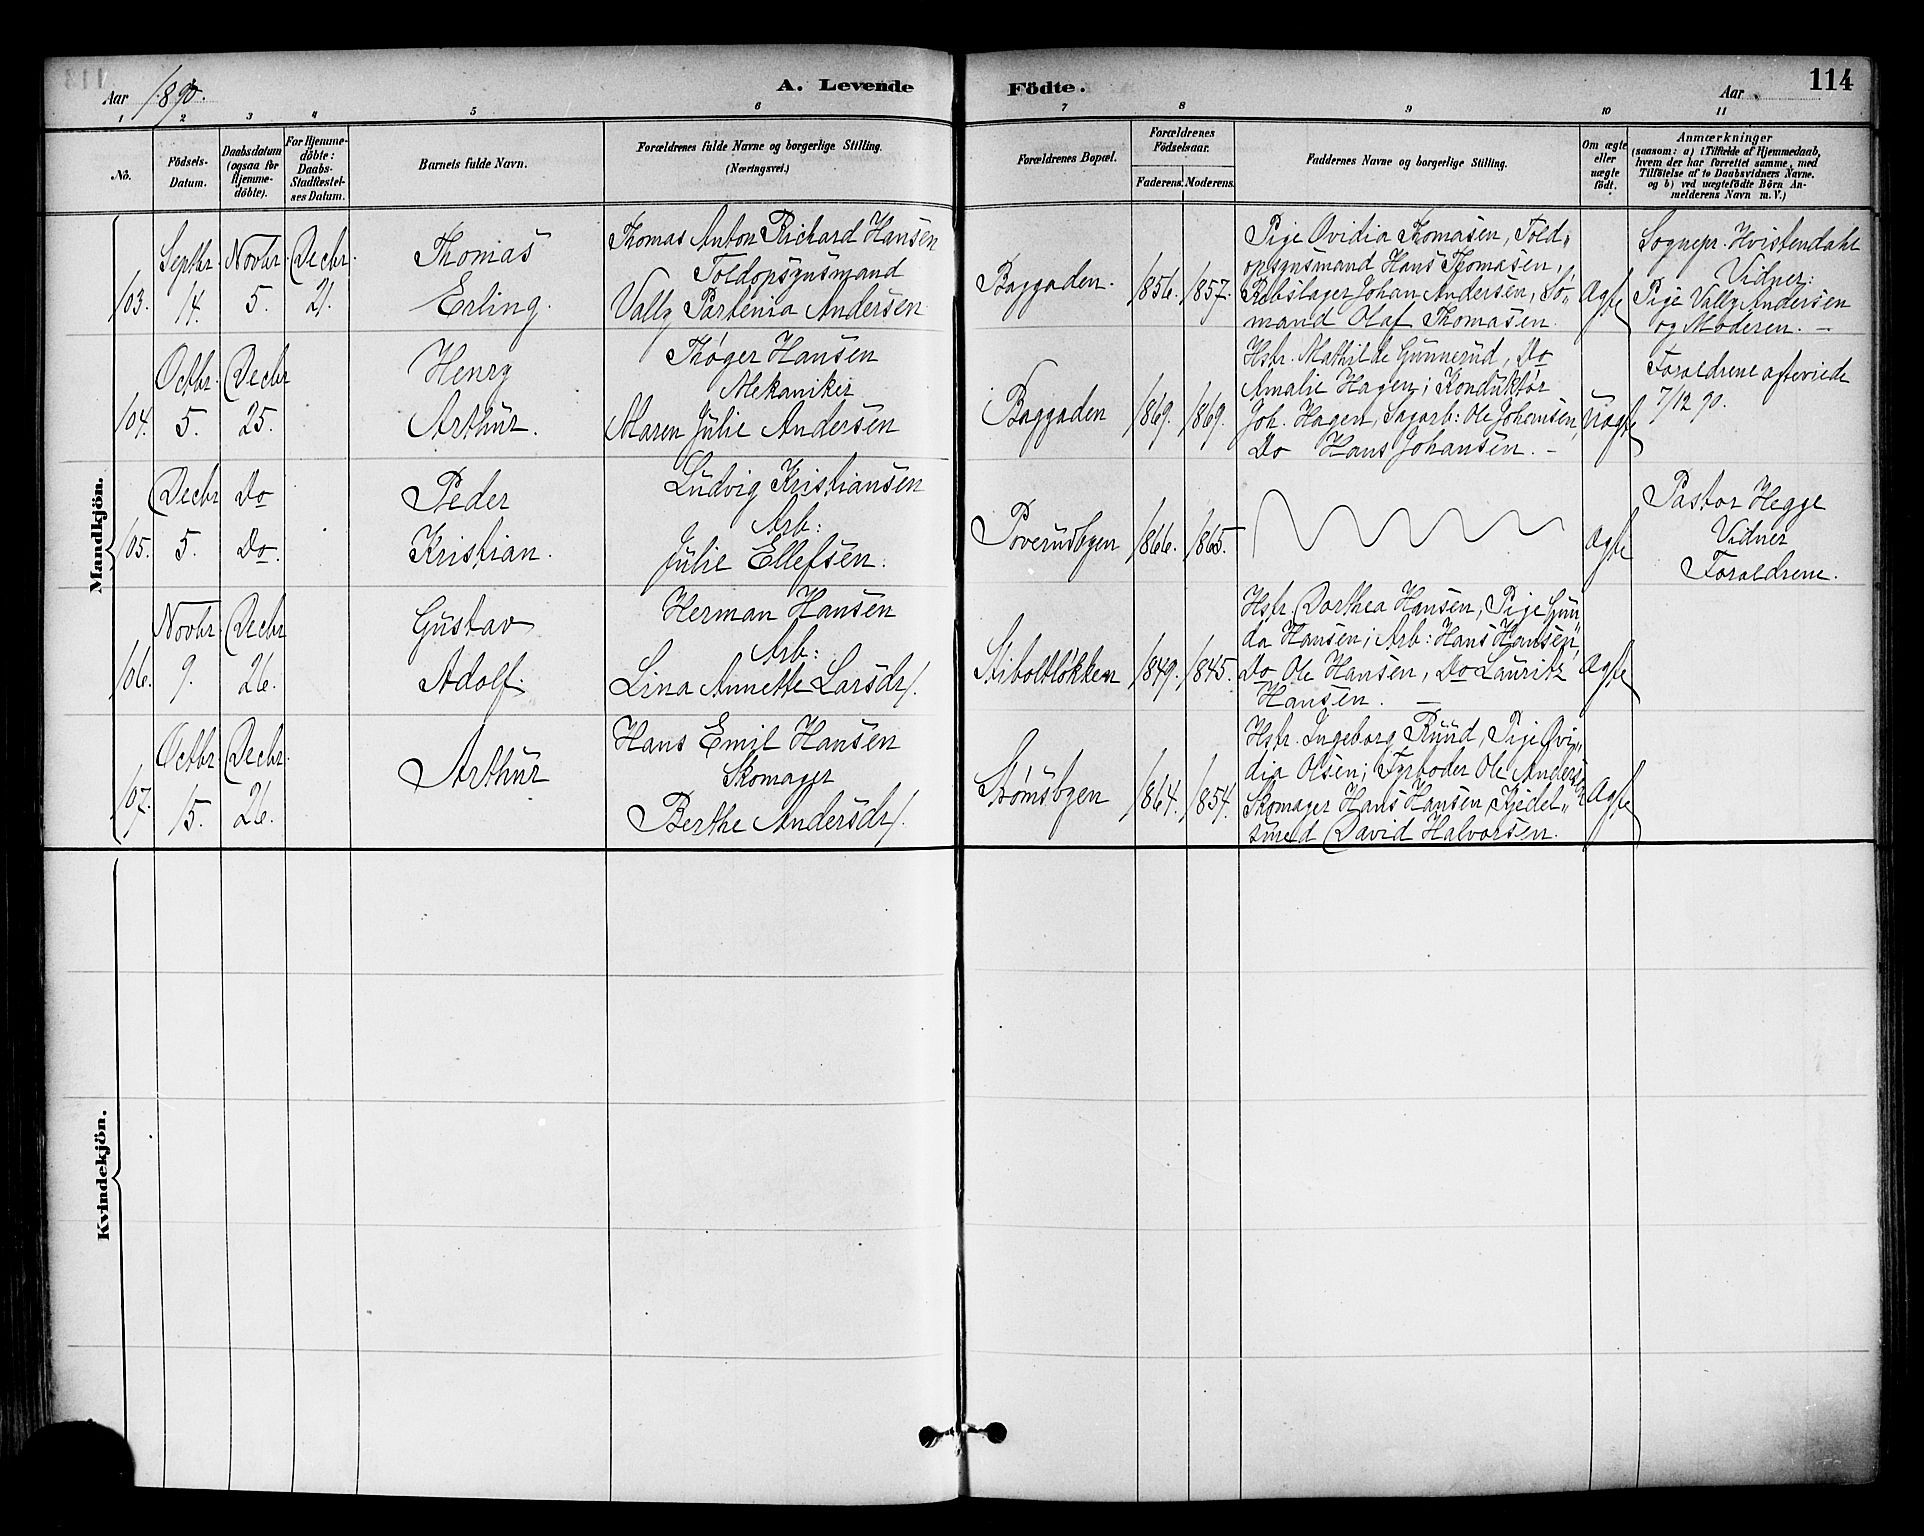 Aar 1890.
A. Levende Födte.
Aar
114
1 2 3 4 5 6 7 8 9 10 11
No.
Födsels-Datum.
Daabsdatum (ogsaa for Hjemme-döbte).
For Hjemme-döbte: Daabs-Stadfæstel-ses Datum.
Barnets fulde Navn.
Forældrenes fulde Navne og borgerlige Stilling. (Næringsvei.)
Forældrenes Bopæl.
Forældrenes Födselsaar.
Faderens. Moderens.
Faddernes Navne og borgerlige Stilling.
Om ægte eller uægte födt.
Anmærkninger
(saasom: a) i Tilfælde af Hjemmedaab,
hvem der har forrettet samme, med
Tilföielse af to Daabsvidners Navne.
og b) ved uægtefödte Börn An-
melderens Navn m. V.)
Mandkjön.
103.
Septbr. 14.
Novbr. 5.
Decbr. 21.
Thomas
Erling.
Thomas Anton Richard Hansen
Toldopsynsmand
Vally Partenia Andersen
Baggaden.
1856. 1857.
Pige Ovidia Thomasen, Told„
opsynsmand Hans Thomasen,
Rebslager Johan Andersen, Sø„
mand Olaf Thomasen.
Ægte
Sognepr. Hvistendahl
Vidner:
Pige Vally Andersen
og Moderen. —
104.
Octbr. 5.
Decbr 25.
Henry
Arthur.
Thøger Hansen
Mekaniker
Maren Julie Andersen
Baggaden
1869. 1869.
Hstr. Mathilde Gunnerud, Do
Amalie Hagen; Konduktør
Joh. Hagen, Sagarb: Ole Johansen,
Do Hans Johansen. —
Uægte
Forældrene ægteviede
7/12 90.
105.
Decbr 5.
Do Do.
Peder
Kristian.
Ludvig Kristiansen
Arb:
Julie Ellefsen.
Poverudbyen
1866. 1865.
Ægte
Pastor Hegge
Vidner
Forældrene.
106.
Novbr. 9.
Decbr 26.
Gustav
Adolf.
Herman Hansen
Arb:
Lina Annette Larsdr/.
Stiboltløkken
1849. 1845.
Hstr. Dorthea Hansen, Pige Gun„
da Hansen; Arb: Hans Hansen,
Do Ole Hansen, Do Lauritz
Hansen. —
Ægte
107.
Octbr. 15.
Decbr. 26.
Arthur
Hans Emil Hansen
Skomager
Berthe Andersdr/.
Strømsbyen
1864. 1854.
Hstr. Ingeborg Ruud, Pige Ovi„
dia Olsen; Fyrbøder Ole Andersen
Skomager Hans Hansen, Kjedel„
smed David Halvorsen.
Ægte
Kvindekjön.